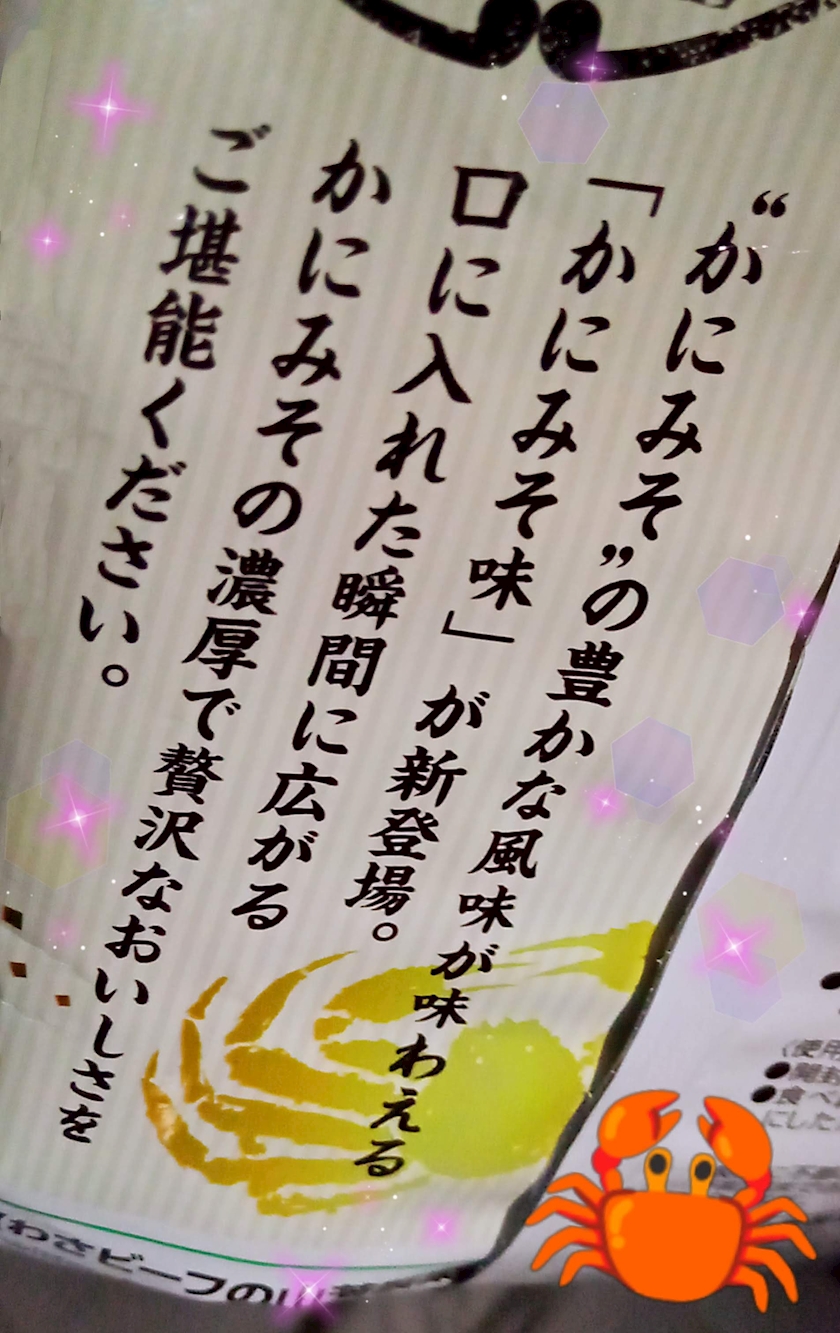 “かにみそ”の豊かな風味が味わえる
「かにみそ味」が新登場。
口に入れた瞬間に広がる
かにみその濃厚で贅沢なおいしさを
ご堪能ください。
わさビーフの山
●
●食べ
にした